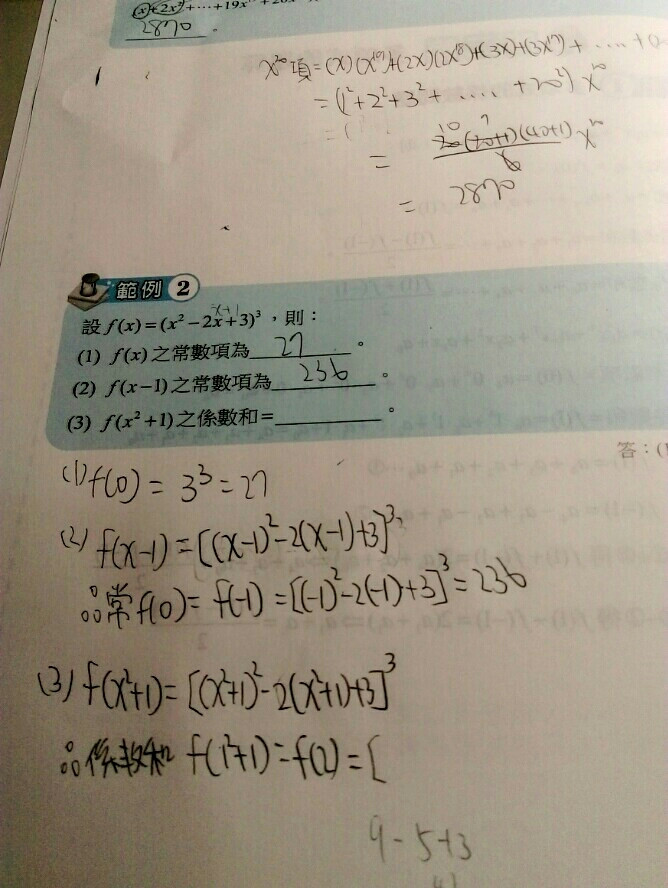 x+2x²+⋯+19x
2870
x²⁰項=(x)(x¹⁹)+(2x)(2x¹⁸)+(3x)+(3x¹⁷)+ ⋯⋯ +
=(1²+2²+3²+ ⋯⋯ +20²) x²⁰
10 7
= 20(20+1)(40+1) x²⁰
6
= 2870
範例 2
-x+1
設 f(x)=(x²-2x+3)³,則:
(1) f(x)之常數項為 27 。
(2) f(x-1)之常數項為 236 。
(3) f(x²+1)之係數和=________。
答:(1
(1) f(0) = 3³ = 27
(2) f(x-1) = [(x-1)²-2(x-1)+3]³
∴常f(0)= f(-1) = [(-1)²-2(-1)+3]³ = 236
(3) f(x²+1) = [(x²+1)²-2(x²+1)+3]³
∴係數和 f(1²+1) = f(2) = [
9-5+3